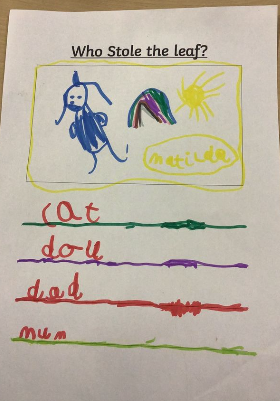 Who Stole the leaf?
matilda
cat
dou
dad
mum